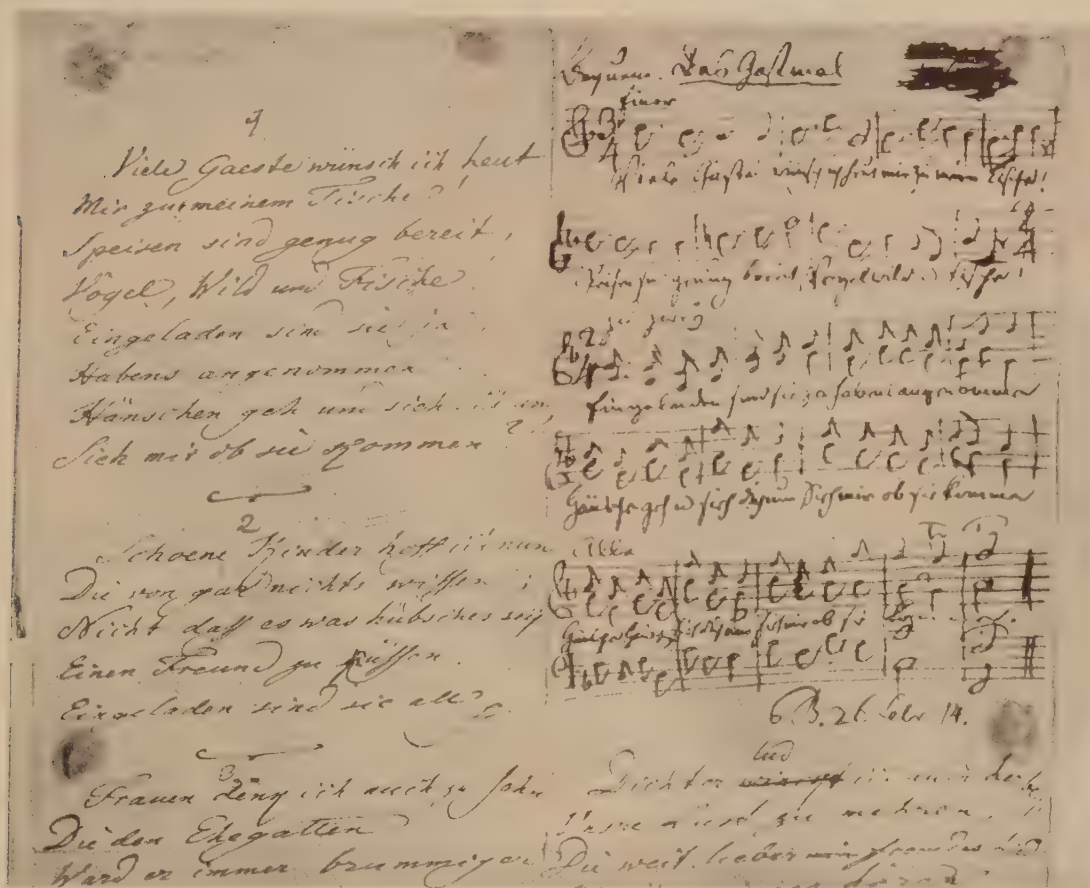 1
Viele Gaeste wünsch ich heut
Mir zu meinem Tische!
Speisen sind genug bereit,
Vögel, Wild und Fische.
Eingeladen sind sie ja
Habens angenommen
Hänschen geh und sieh dich um
Sieh mir ob sie kommen
2
Schoene Kinder hoff ich nun
Die von gar nichts wissen;
Nicht daß es was hübsches sey
Einen Freund zu küssen.
Eingeladen sind sie all
3
Frauen denk ich auch zu sehn
Die den Ehegatten
Ward er immer brummiger
Bequem. Das Gastmal
Einer
3/4
Viele Gäste wünsch ich heut mir zu meinem Tische!
Speisen sind genug bereit, Vögel Wild u Fische!
zu zwey
2/4
Eingeladen sind sie ja habens angenommen
Hänschen geh u sieh dich um Sieh mir ob sie kommen
Alle
Hänschen geh u sieh dich um sieh mir ob sie
B. 26. Febr 14.
lud
Dichter ich auch
Unsre Lust zu mehren,
Die weit lieber ein fremdes